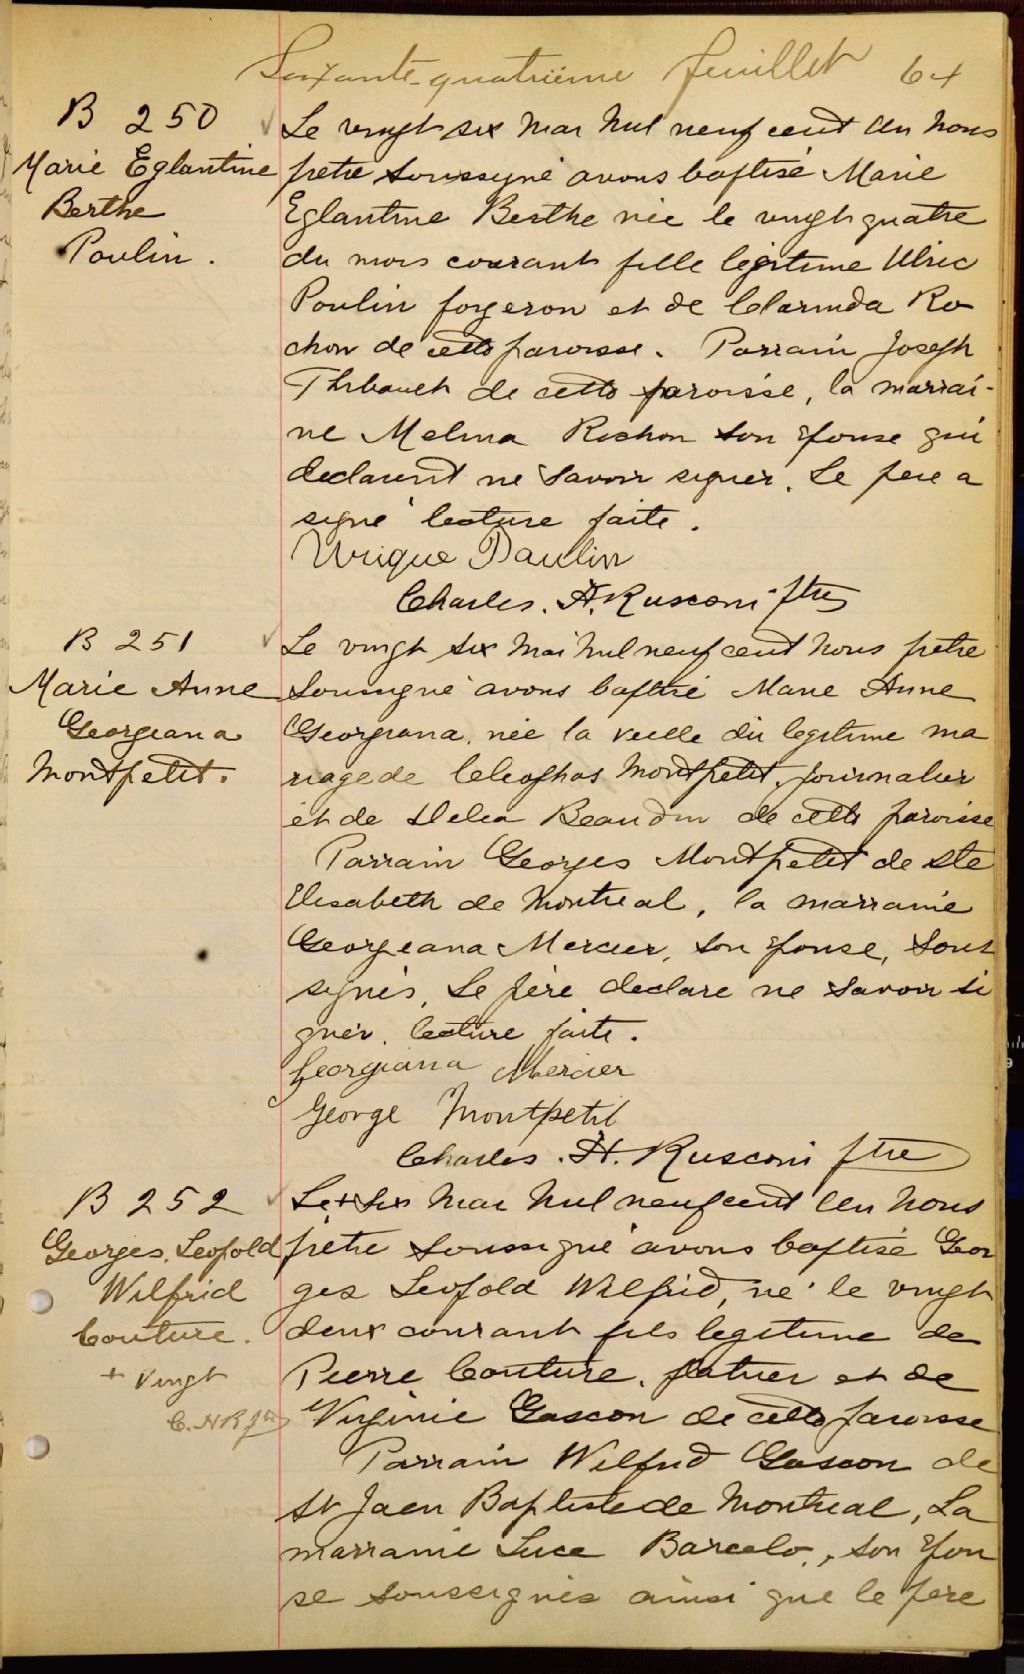 Soixante-quatrième feuillet 64
B 250
Marie Eglantine
Berthe
Poulin.
Le vingt six Mai Mil neuf cent un Nous
prêtre soussigné avons baptisé Marie
Eglantine Berthe née le vingt quatre
du mois courant fille légitime Ulric
Poulin forgeron et de Clarinda Ro
chon de cette paroisse. Parrain Joseph
Thibault de cette paroisse, la marrai-
ne Melina Rochon son épouse qui
declarent ne savoir signer. Le père a
signé lecture faite.
Urique Paulin
Charles. A. Rusconi ptre
B 251
Marie Anne
Georgeana
Montpetit.
Le vingt six Mai Mil neuf cent Nous prêtre
Soussigné avons baptisé Marie Anne
Georgiana, née la veille du legitime ma
riage de Cleophas Montpetit, journalier
et de Delia Beaudin de cette paroisse
Parrain Georges Montpetit de Ste
Elisabeth de Montreal, la marraine
Georgeana Mercier, son épouse, Sous
signés, Le père declare ne savoir si
gner. lecture faite.
Georgiana Mercier
George Montpetit
Charles. A. Rusconi ptre
B 252
Georges Leopold
Wilfrid
Couture.
+ Vingt
C.A.R ptre
Le + six Mai Mil neuf cent un Nous
prêtre soussigné avons baptisé Geor
ges Leopold Wilfrid, né le vingt
deux courant fils legitime de
Pierre Couture, platrier et de
Virginie Gascon de cette paroisse
Parrain Wilfrid Gascon de
St Jaen Baptiste de Montreal, La
marraine Luce Barcelo, son épou
se soussignés ainsi que le père